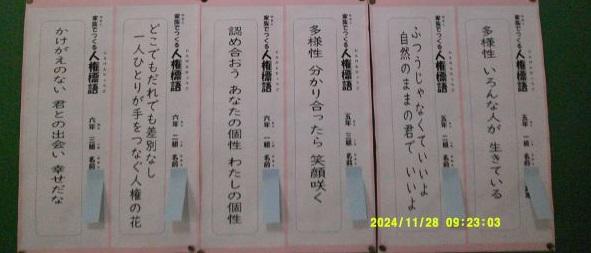 家族でつくる人権標語
五年 一組 名前
多様性 いろんな人が 生きている
家族でつくる人権標語
五年 二組 名前
ふつうじゃなくていいよ
自然のままの君で いいよ
家族でつくる人権標語
五年 三組 名前
多様性 分かり合ったら 笑顔咲く
家族でつくる人権標語
六年 一組 名前
認め合おう あなたの個性 わたしの個性
家族でつくる人権標語
六年 二組 名前
どこでもだれでも差別なし
一人ひとりが手をつなぐ人権の花
家族でつくる人権標語
六年 三組 名前
かけがえのない 君との出会い 幸せだな
2024/11/28 09:23:03